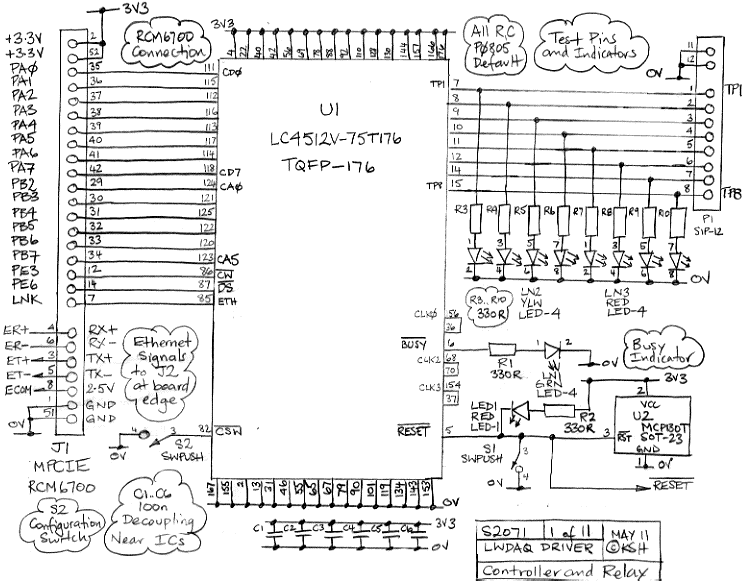 3V3
RCM6700
Connection
3V3
4 22 40 42 56 69 78 88 92 110 130 144 157 166 176
All R,C
P0805
Default
Test Pins
and Indicators
+3.3V 2
+3.3V 52
PA0 35 111 CD0
PA1 36 115
PA2 37 112
PA3 38 116
PA4 39 113
PA5 40 117
PA6 41 114
PA7 42 118 CD7
PB2 29 124 CA0
PB3 30 121
PB4 31 125
PB5 32 122
PB6 33 120
PB7 34 123 CA5
PE3 12 86 CW
PE6 14 87 DS
LNK 7 85 ETH
U1
LC4512V-75T176
TQFP-176
0V 11
12
TP1 7 1 TP1
8 2
9 3
10 4
11 5
12 6
14 7
TP8 15 8 TP8
P1
SIP-12
R3 R4 R5 R6 R7 R8 R9 R10
1 3 5 7 1 3 5 7
2 4 6 8 2 4 6 8
0V
R3..R10
330R
LN2
YLW
LED-4
LN3
RED
LED-4
ER+ 4 RX+
ER- 6 RX-
ET+ 3 TX+
ET- 5 TX-
ECOM 8 2.5V
1 GND
0V 51 GND
Ethernet
Signals
to J2
at board
edge
CLK0 56
36
BUSY 6
CLK2 68
70
CLK3 154
37
R1
330R
1 2
LN1
GRN
LED-4
0V
Busy
Indicator
3V3
LED1
RED
LED-1
R2
330R
2
VCC
U2
MCP130T
SOT-23
3 RST
GND
1 0V
RESET 5
S1
SWPUSH
3
4
0V
RESET
J1
MPCIE
RCM6700
4 3
S2
SWPUSH
0V
82 CSW
S2
Configuration
Switch
C1..C6
100n
Decoupling
Near ICs
167 155 2 13 31 46 55 65 67 79 90 101 119 134 143 153
0V
C1 C2 C3 C4 C5 C6
3V3
0V
S2071 1 of 11 MAY 11
LWDAQ DRIVER ©KSH
Controller and Relay